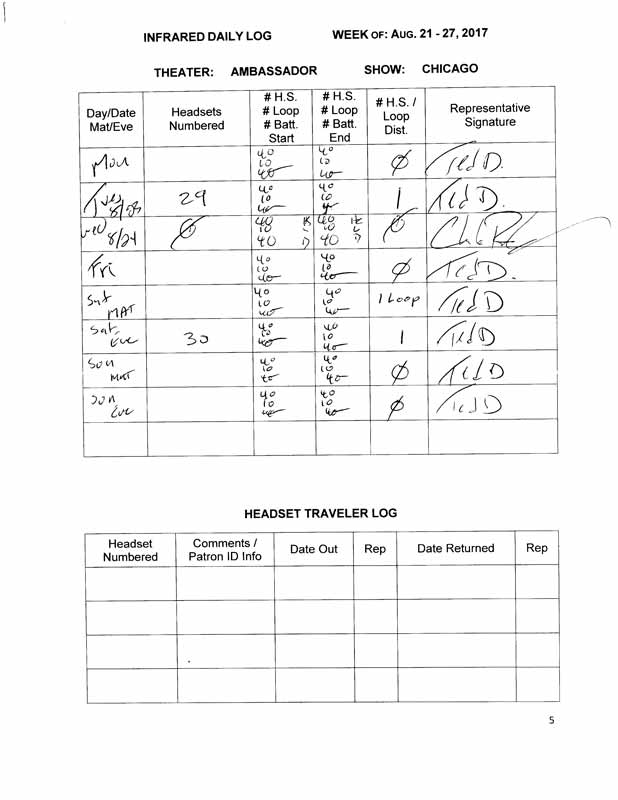 INFRARED DAILY LOG WEEK OF: AUG. 21 - 27, 2017
THEATER: AMBASSADOR SHOW: CHICAGO
Day/Date Mat/Eve
Headsets Numbered
# H.S. # Loop # Batt. Start
# H.S. # Loop # Batt. End
# H.S. / Loop Dist.
Representative Signature
Mon
40 10 40
40 10 40
Ø
Ted D.
Tues
29
40 10 40
40 10 40
1
Ted D.
Wed 8/24
Ø
40 10 40
40 10 40
Ø
Fri
40 10 40
40 10 40
Ø
Ted D.
Sat MAT
40 10 40
40 10 40
1 Loop
Ted D
Sat. Eve
30
40 10 40
40 10 40
1
Ted D
Sun MAT
40 10 40
40 10 40
Ø
Ted D
Sun Eve
40 10 40
40 10 40
Ø
Ted D
HEADSET TRAVELER LOG
Headset Numbered
Comments / Patron ID Info
Date Out
Rep
Date Returned
Rep
5